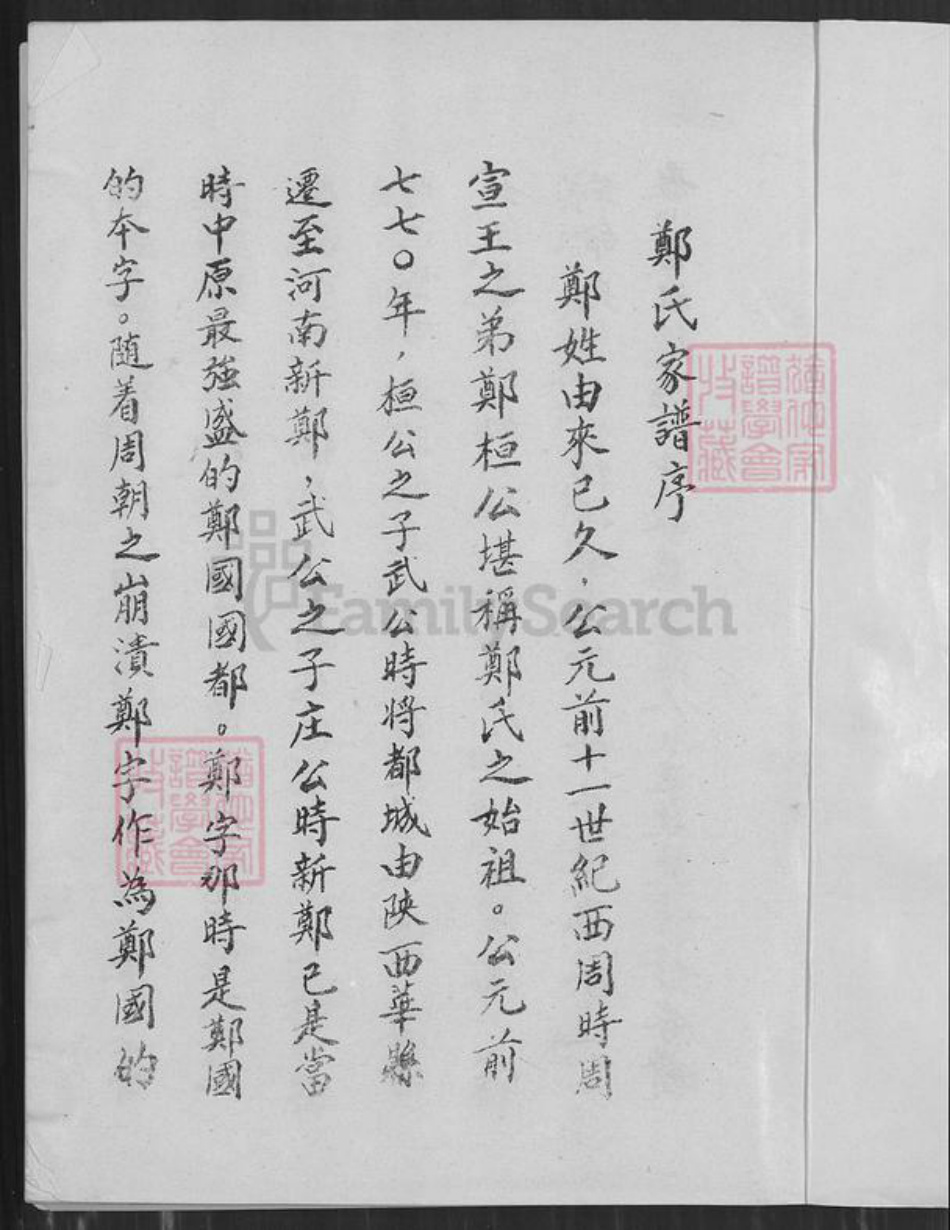 鄭氏家譜序
鄭姓由來已久，公元前十一世紀西周時周
宣王之弟鄭桓公堪稱鄭氏之始祖。公元前
七七〇年，桓公之子武公時將都城由陝西華縣
遷至河南新鄭，武公之子庄公時新鄭已是當
時中原最強盛的鄭國國都。鄭字那時是鄭國
的本字。随着周朝之崩潰鄭字作為鄭國的
FamilySearch
譜學會
收藏
譜學會
收藏